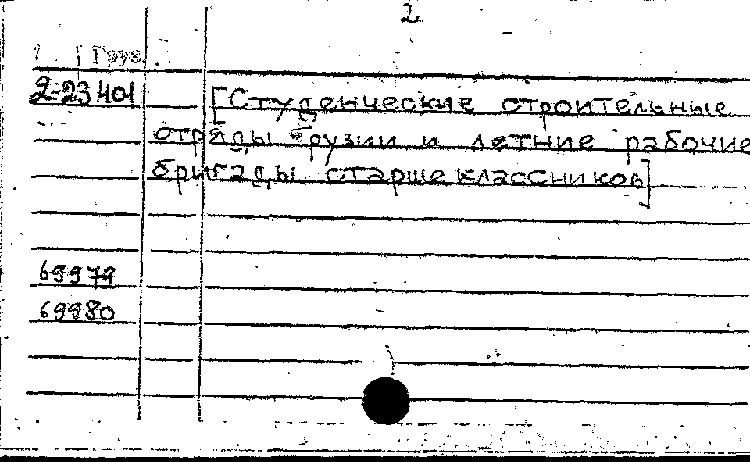 2
Груз.
2-23401 [Студенческие строительные
отряды Грузии и летние рабочие
бригады старшеклассников]
69979
69980